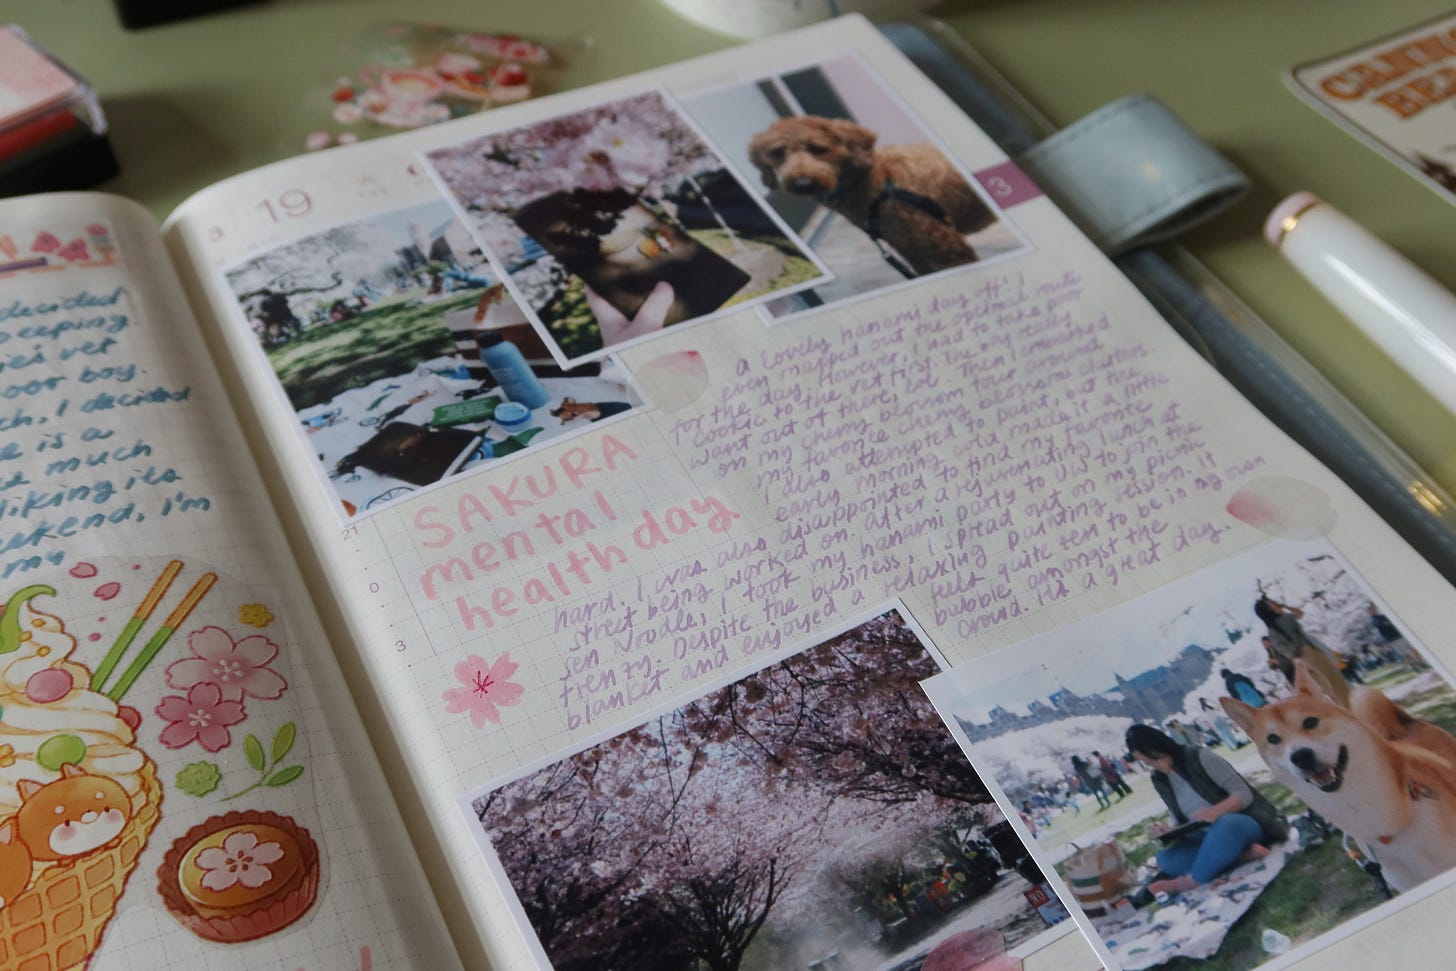 decided
vet
poor boy.
I decided
is a
much
liking its
weekend, I'm
my
3
19
3
21
0
3
SAKURA
mental
health day
A lovely hanami day off! I
even mapped out the optimal route
for the day. However, I had to take poor
Cookie to the vet first. The boy really
want out of there, lol. Then I embarked
on my cherry blossom tour around
my favorite cherry blossom clusters.
I also attempted to paint, but the
early morning cold made it a little
hard. I was also disappointed to find my favorite
street being worked on. After a rejuvenating lunch at
Sen Noodle, I took my hanami party to UW to join the
frenzy. Despite the business, I spread out on my picnic
blanket and enjoyed a relaxing painting session. It
feels quite zen to be in my own
bubble amongst the
crowd. It's a great day.
NO